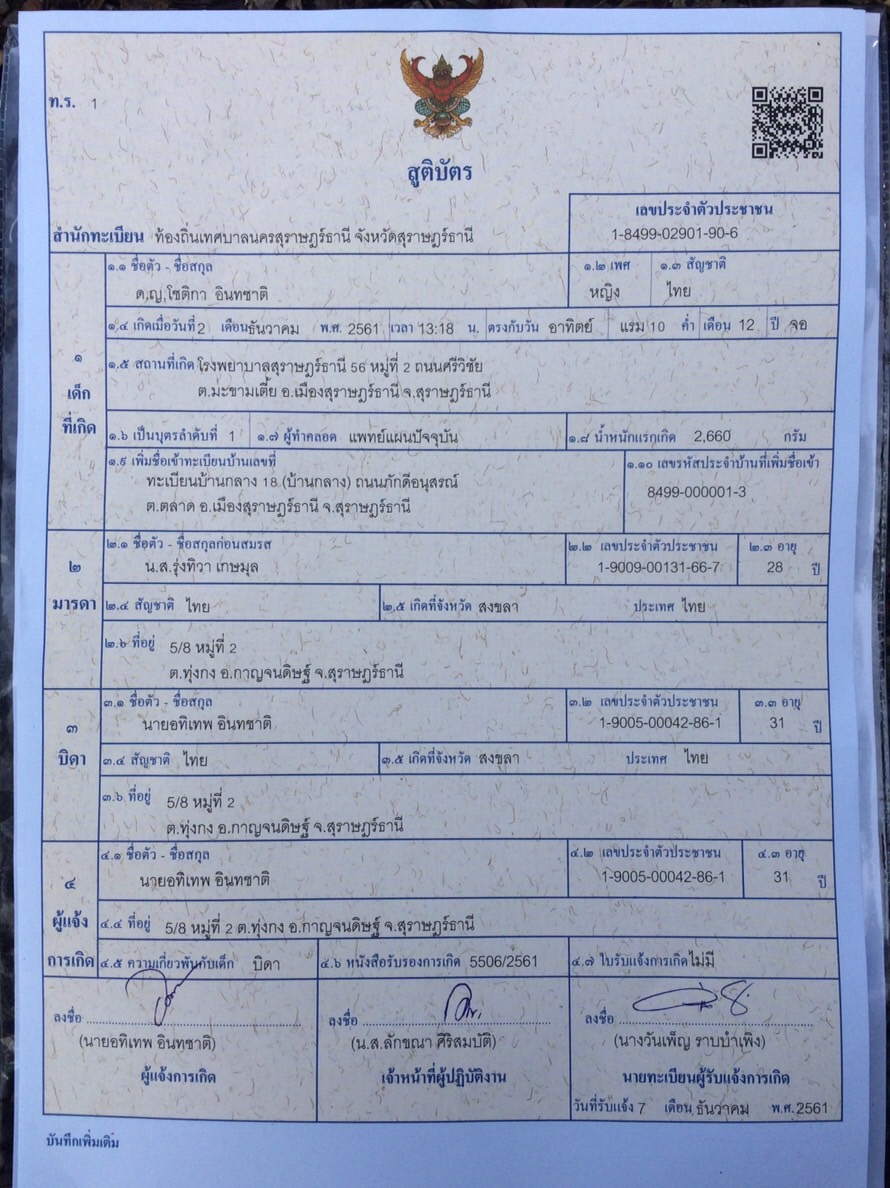 ท.ร. 1
สูติบัตร
เลขประจำตัวประชาชน
สำนักทะเบียน ท้องถิ่นเทศบาลนครสุราษฎร์ธานี จังหวัดสุราษฎร์ธานี
1-8499-02901-90-6
๑ เด็กที่เกิด
๑.๑ ชื่อตัว - ชื่อสกุล ๑.๒ เพศ ๑.๓ สัญชาติ
ด.ญ.โชติกา อินทชาติ หญิง ไทย
๑.๔ เกิดเมื่อวันที่ 2 เดือน ธันวาคม พ.ศ. 2561 เวลา 13:18 น. ตรงกับวัน อาทิตย์ แรม 10 ค่ำ เดือน 12 ปี จอ
๑.๕ สถานที่เกิด โรงพยาบาลสุราษฎร์ธานี 56 หมู่ที่ 2 ถนนศรีวิชัย
ต.มะขามเตี้ย อ.เมืองสุราษฎร์ธานี จ.สุราษฎร์ธานี
๑.๖ เป็นบุตรลำดับที่ 1 ๑.๗ ผู้ทำคลอด แพทย์แผนปัจจุบัน ๑.๘ น้ำหนักแรกเกิด 2,660 กรัม
๑.๙ เพิ่มชื่อเข้าทะเบียนบ้านเลขที่ ๑.๑๐ เลขรหัสประจำบ้านที่เพิ่มชื่อเข้า
ทะเบียนบ้านกลาง 18 (บ้านกลาง) ถนนภักดีอนุสรณ์
8499-000001-3
ต.ตลาด อ.เมืองสุราษฎร์ธานี จ.สุราษฎร์ธานี
๒ มารดา
๒.๑ ชื่อตัว - ชื่อสกุลก่อนสมรส ๒.๒ เลขประจำตัวประชาชน ๒.๓ อายุ
น.ส.รุ่งทิวา เกษมุล 1-9009-00131-66-7 28 ปี
๒.๔ สัญชาติ ไทย ๒.๕ เกิดที่จังหวัด สงขลา ประเทศ ไทย
๒.๖ ที่อยู่ 5/8 หมู่ที่ 2
ต.ทุ่งกง อ.กาญจนดิษฐ์ จ.สุราษฎร์ธานี
๓ บิดา
๓.๑ ชื่อตัว - ชื่อสกุล ๓.๒ เลขประจำตัวประชาชน ๓.๓ อายุ
นายอทิเทพ อินทชาติ 1-9005-00042-86-1 31 ปี
๓.๔ สัญชาติ ไทย ๓.๕ เกิดที่จังหวัด สงขลา ประเทศ ไทย
๓.๖ ที่อยู่ 5/8 หมู่ที่ 2
ต.ทุ่งกง อ.กาญจนดิษฐ์ จ.สุราษฎร์ธานี
๔ ผู้แจ้งการเกิด
๔.๑ ชื่อตัว - ชื่อสกุล ๔.๒ เลขประจำตัวประชาชน ๔.๓ อายุ
นายอทิเทพ อินทชาติ 1-9005-00042-86-1 31 ปี
๔.๔ ที่อยู่ 5/8 หมู่ที่ 2 ต.ทุ่งกง อ.กาญจนดิษฐ์ จ.สุราษฎร์ธานี
๔.๕ ความเกี่ยวพันกับเด็ก บิดา ๔.๖ หนังสือรับรองการเกิด 5506/2561 ๔.๗ ใบรับแจ้งการเกิด ไม่มี
ลงชื่อ ลงชื่อ ลงชื่อ
(นายอทิเทพ อินทชาติ) (น.ส.ลักขณา ศิริสมบัติ) (นางวันเพ็ญ ราบบำเพิง)
ผู้แจ้งการเกิด เจ้าหน้าที่ผู้ปฏิบัติงาน นายทะเบียนผู้รับแจ้งการเกิด
วันที่รับแจ้ง 7 เดือน ธันวาคม พ.ศ.2561
บันทึกเพิ่มเติม